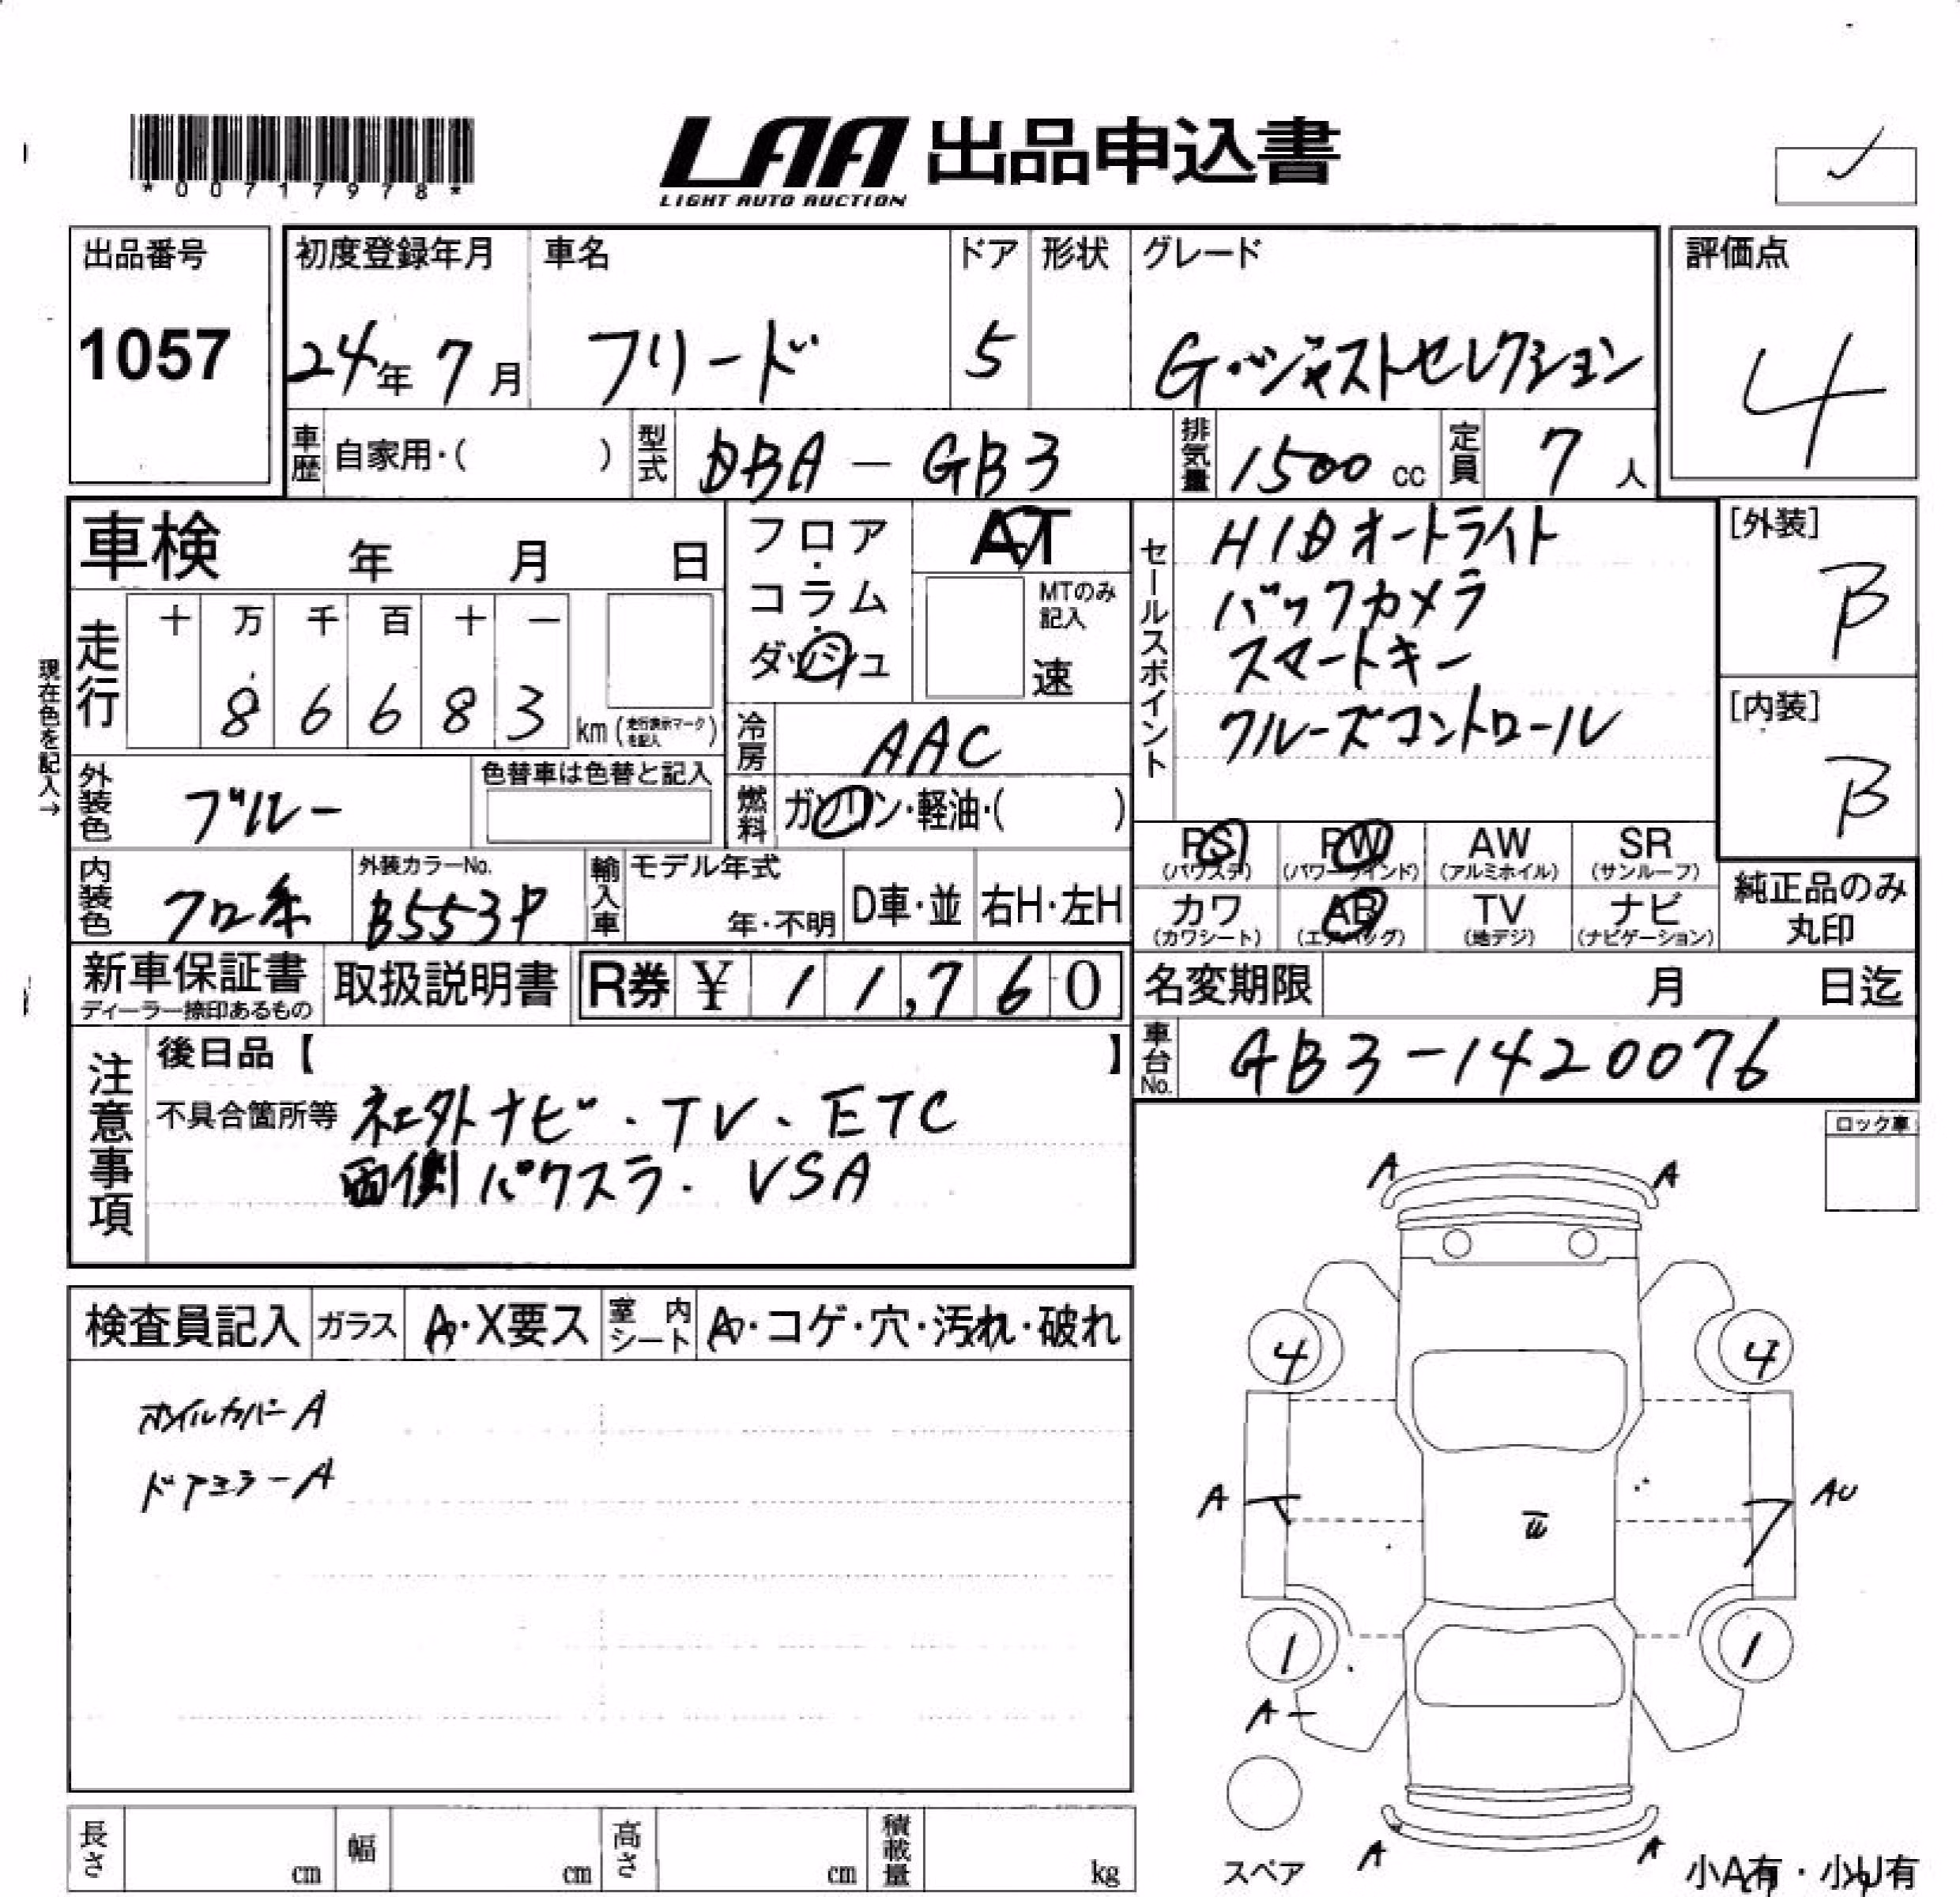 *00717978*
LAA 出品申込書
LIGHT AUTO AUCTION
出品番号
1057
初度登録年月
24年 7月
車名
フリード
ドア
5
形状
グレード
G・ジャストセレクション
評価点
4
車歴
自家用・( )
型式
DBA - GB3
排気量
1500 cc
定員
7 人
車検 年 月 日
フロア・
コラム・
ダッシュ
AT
MTのみ
記入
速
セールスポイント
HIDオートライト
バックカメラ
スマートキー
クルーズコントロール
[外装]
B
[内装]
B
現在色を記入→
走行
十 万 千 百 十 一
8 6 6 8 3
km (走行表示マークを記入)
冷房
AAC
外装色
ブルー
色替車は色替と記入
燃料
ガソリン・軽油・( )
PS
(パワステ)
PW
(パワーウインド)
AW
(アルミホイル)
SR
(サンルーフ)
カワ
(カワシート)
AB
(エアバッグ)
TV
(地デジ)
ナビ
(ナビゲーション)
純正品のみ
丸印
内装色
クロ系
外装カラーNo.
B553P
輸入車
モデル年式
年・不明
D車・並
右H・左H
新車保証書
ディーラー捺印あるもの
取扱説明書
R券 ¥ 11,760
名変期限 月 日迄
車台No.
GB3-1420076
注意事項
後日品【 】
不具合箇所等 社外ナビ・TV・ETC
両側パワスラ・VSA
ロック車
検査員記入
ガラス
A・X要ス
室内シート
A・コゲ・穴・汚れ・破れ
ホイルカバーA
ドアミラーA
A A
4 4
A AU
U
1 1
A
スペア
A A
小A有・小U有
長さ cm
幅 cm
高さ cm
積載量 kg